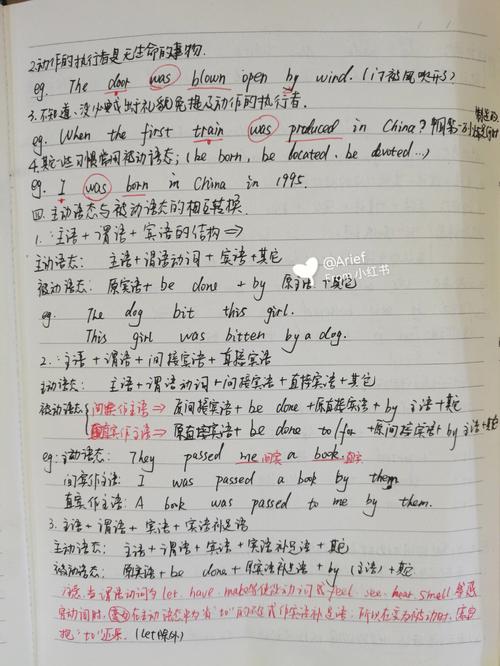 2.动作的执行者是无生命的事物.
eg. The door was blown open by wind. (门被风吹开了)
3.不知道、没必要或出于礼貌避免提及动作的执行者.
eg. When the first train was produced in China? 中国第一列
4.其它一些习惯常用被动语态; (be born, be located, be devoted...)
eg. I was born in China in 1995.
四.主动语态与被动语态的相互转换.
1.主语+谓语+宾语的结构⇒
主动语态: 主语+谓语动词+宾语+其它
被动语态: 原宾语+be done +by 原主语+其它
@Arief
From 小红书
eg. The dog bit this girl.
This girl was bitten by a dog.
2.主语+谓语+间接宾语+直接宾语
主动语态: 主语+谓语动词+间接宾语+直接宾语+其它
被动语态{间宾作主语⇒ 原间接宾语+be done+原直接宾语+by 主语+其它
直宾作主语⇒ 原直接宾语+be done to/for +原间接宾语+by主语+其它
eg:主动语态: They passed me 间宾 a book. 直宾
间宾作主语: I was passed a book by them.
直宾作主语: A book was passed to me by them.
3.主语+谓语+宾语+宾语补足语
主动语态: 主语+谓语+宾语+宾语补足语+其它
被动语态: 原宾语+be done+原宾语补足语+by(主语)+其它
注意,当谓语动词为let、have、make等使役动词或feel、see、hear、smell等感
官动词时,在主动语态中为省"to"的形式作宾语补足语,所以在变为被动时,需要
把"to"还原. (let除外)